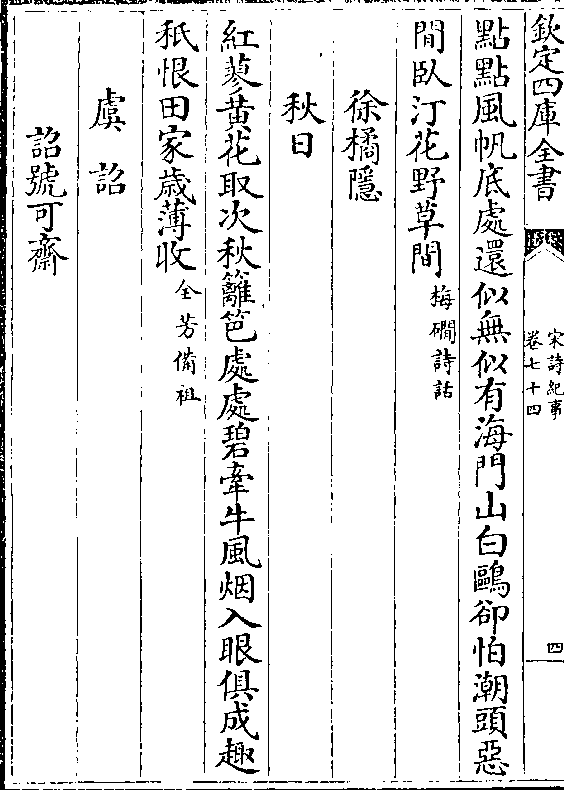 欽定四庫全書
宋詩紀事
卷七十四
四
點點風帆底處還似無似有海門山白鷗卻怕潮頭惡
閒臥汀花野草間梅磵詩話
徐橘隱
秋日
紅蓼黄花取次秋籬笆處處碧牽牛風烟入眼俱成趣
秖恨田家歳薄收全芳備祖
虞䛒
䛒號可齋